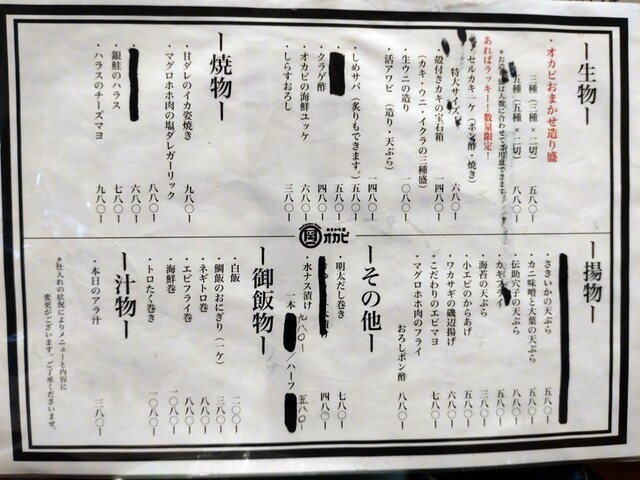 ー生物ー
・オカピおまかせ造り盛
三種(三種×二切) 五八〇ー
五種(五種×二切) 八八〇ー
あればラッキー!数量限定!
特大サイズ
セルカキ一ケ(ポン酢・焼き) 六八〇ー
・殻付きカキの宝石箱 一四八〇ー
(カキ・ウニ・イクラの三種盛)
・生ウニの造り 一〇八〇ー
・活アワビ(造り・天ぷら) 一四八〇ー
・しめサバ(炙りもできます。) 五八〇ー
五八〇ー
・クラゲ酢 四八〇ー
・オカピの海鮮ユッケ 六八〇ー
・しらすおろし 三八〇ー
ー焼物ー
・甘ダレのイカ姿焼き 九八〇ー
・マグロホホ肉の塩ダレガーリック 八八〇ー
六八〇ー
・銀鮭のハラス 七八〇ー
・ハラスのチーズマヨ 九八〇ー
オカピ
ー揚物ー
・さきいかの天ぷら 五八〇ー
・カニ味噌と大葉の天ぷら 五八〇ー
・伝助穴子の天ぷら 八八〇ー
・カキフライ 五八〇ー
・海苔の天ぷら 三八〇ー
・小エビのからあげ 五八〇ー
・ワカサギの磯辺揚げ 六八〇ー
・こだわりのエビマヨ 七八〇ー
・マグロホホ肉のフライ
おろしポン酢 八八〇ー
ーその他ー
・明太だし巻き 七八〇ー
四八〇ー
・水ナス漬け
一本 九八〇ー/ハーフ 五八〇ー
ー御飯物ー
・白飯 二〇〇ー
・鯛飯のおにぎり(一ケ) 三八〇ー
・ネギトロ巻 八八〇ー
・エビフライ巻 八八〇ー
・海鮮巻 一〇八〇ー
・トロたく巻き 一〇八〇ー
ー汁物ー
・本日のアラ汁 三八〇ー
※仕入れの状況によりメニューと内容に
変更がございます。ご了承くださいませ。